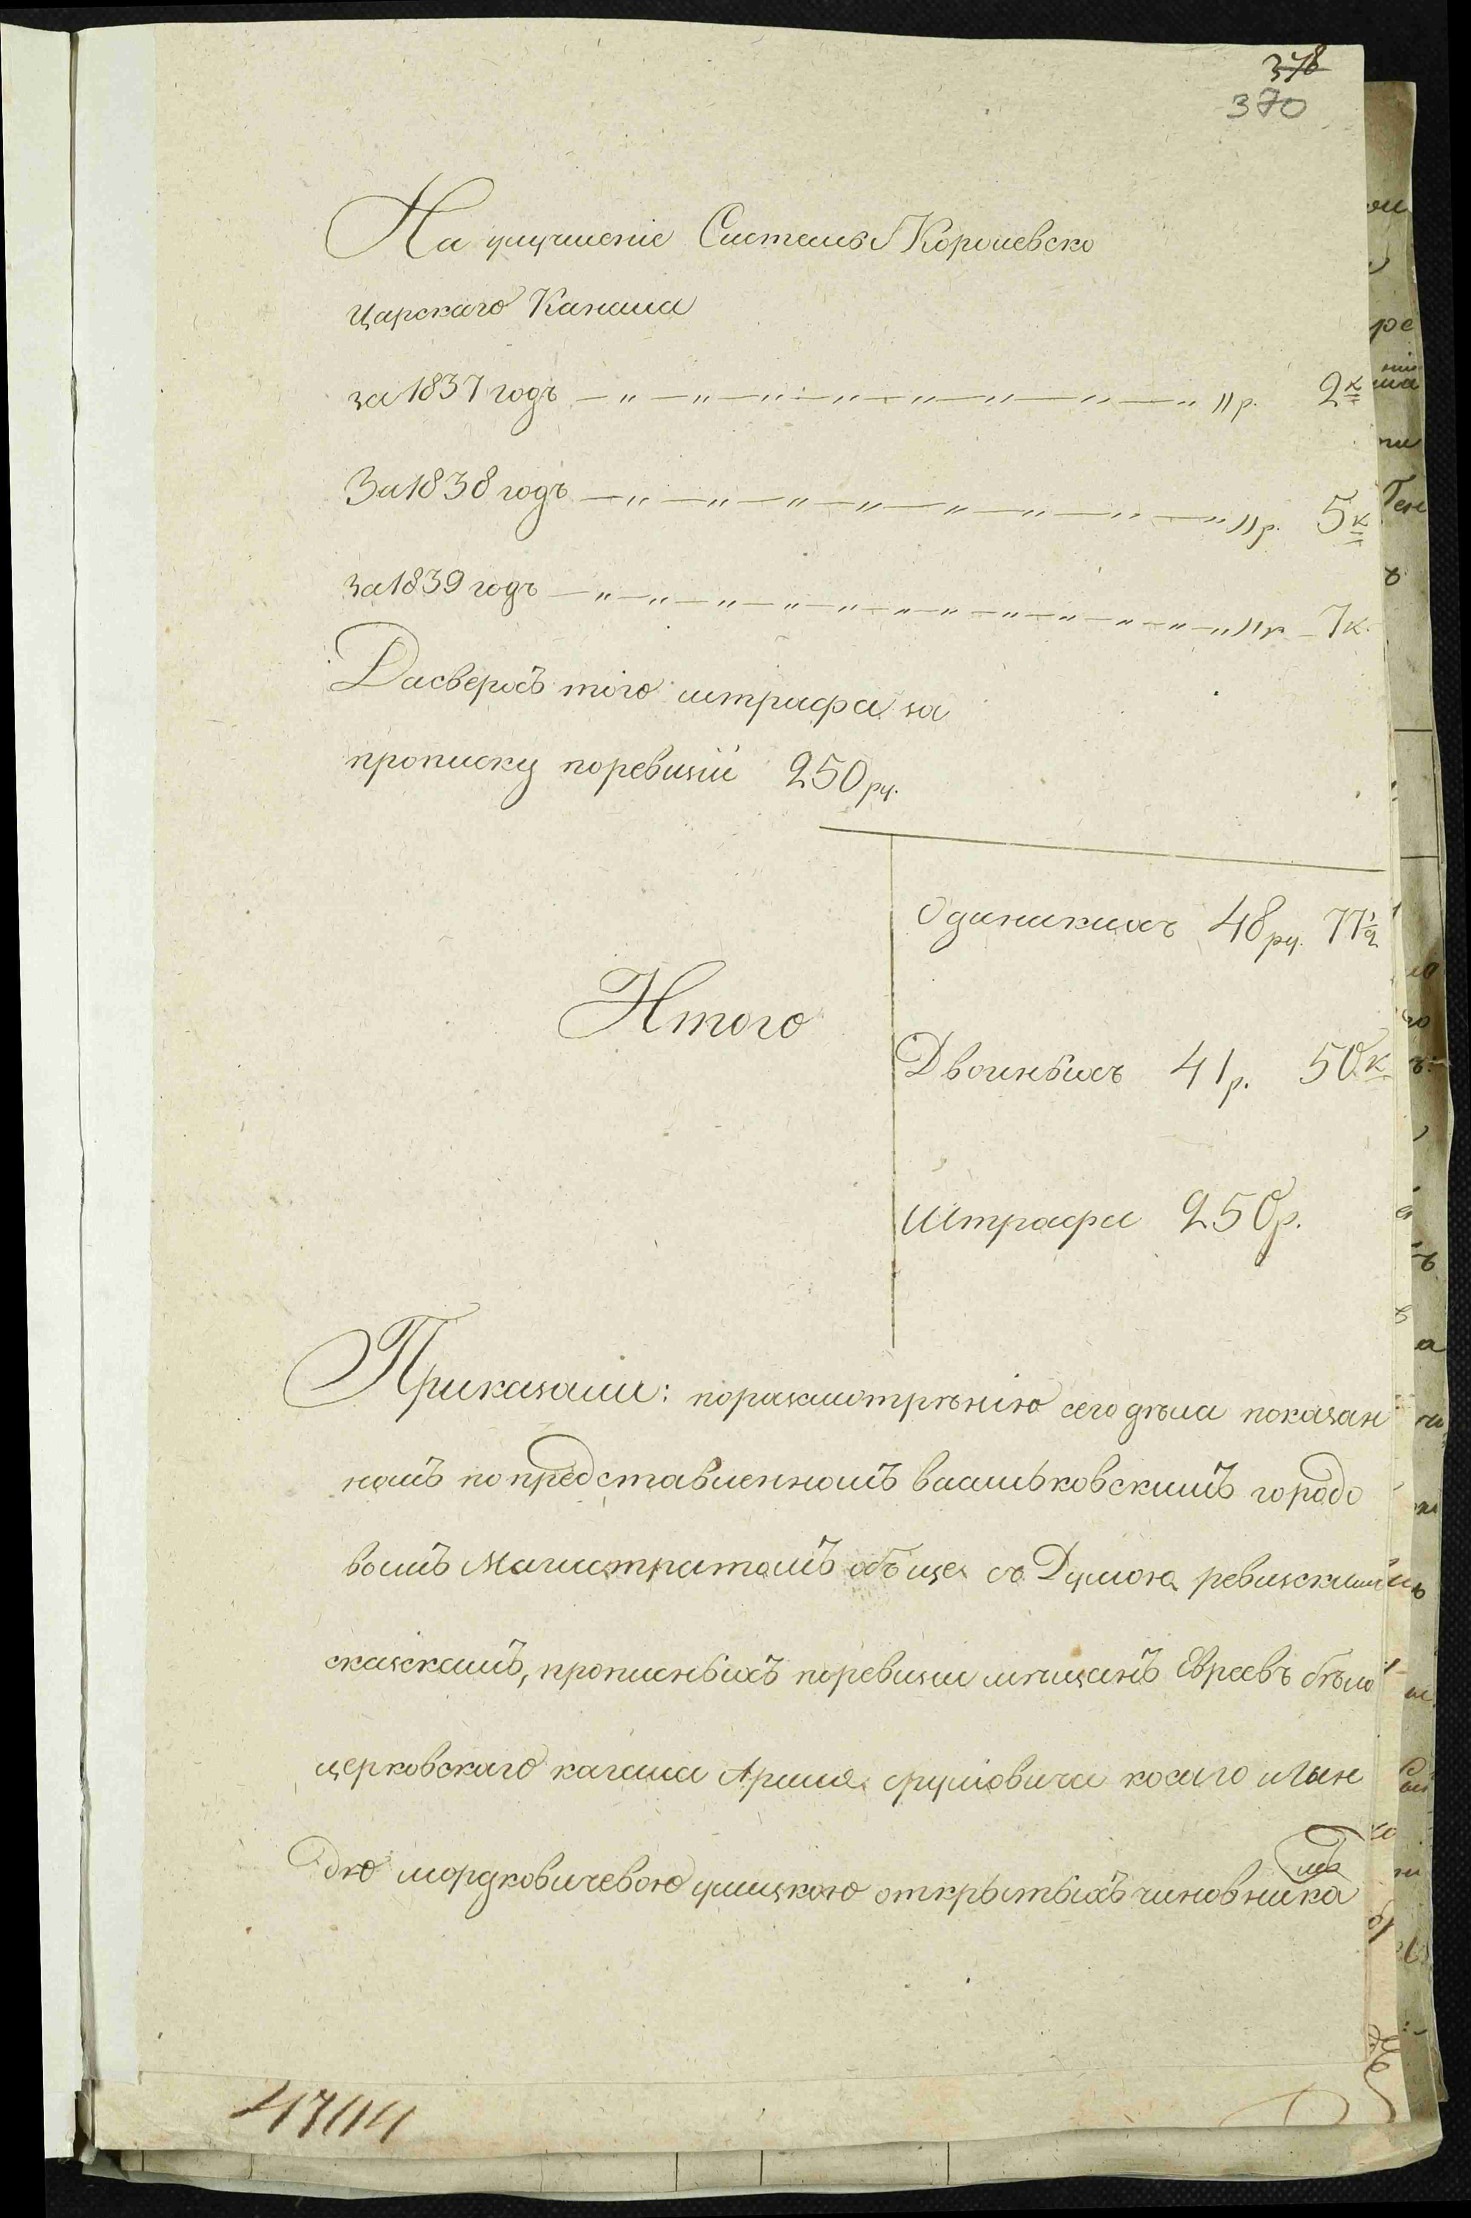 378
370
На улучшеніе Системы Королевско
Царскаго Канала
за 1837 годъ — „ — „ — „ — „ — „ — „ — „ — „ „р. 2к
За 1838 годъ — „ — „ — „ — „ — „ — „ — „ — „ „р. 5к
за 1839 годъ — „ — „ — „ — „ — „ — „ — „ — „ „р — 7к.
Дасверхъ того штрафа за
прописку поревизіи 250 ру.
Одинакихъ 48 ру. 77 1/2
Итого
Двоиныхъ 41 р. 50 к
Штрафа 250 р.
Приказали: поразсмотрѣнію сего дѣла показан
номъ по представленномъ васильковскимъ городо
вымъ Магистратомъ обще съ Думою ревизскимъ
сказкамъ, прописныхъ поревизіи мѣщанъ Евреевъ бѣло
церковскаго кагала Аршля сруліовича косаго и Гин
дю мордковичевою улицкою открытыхъ чиновника
мъ
47114